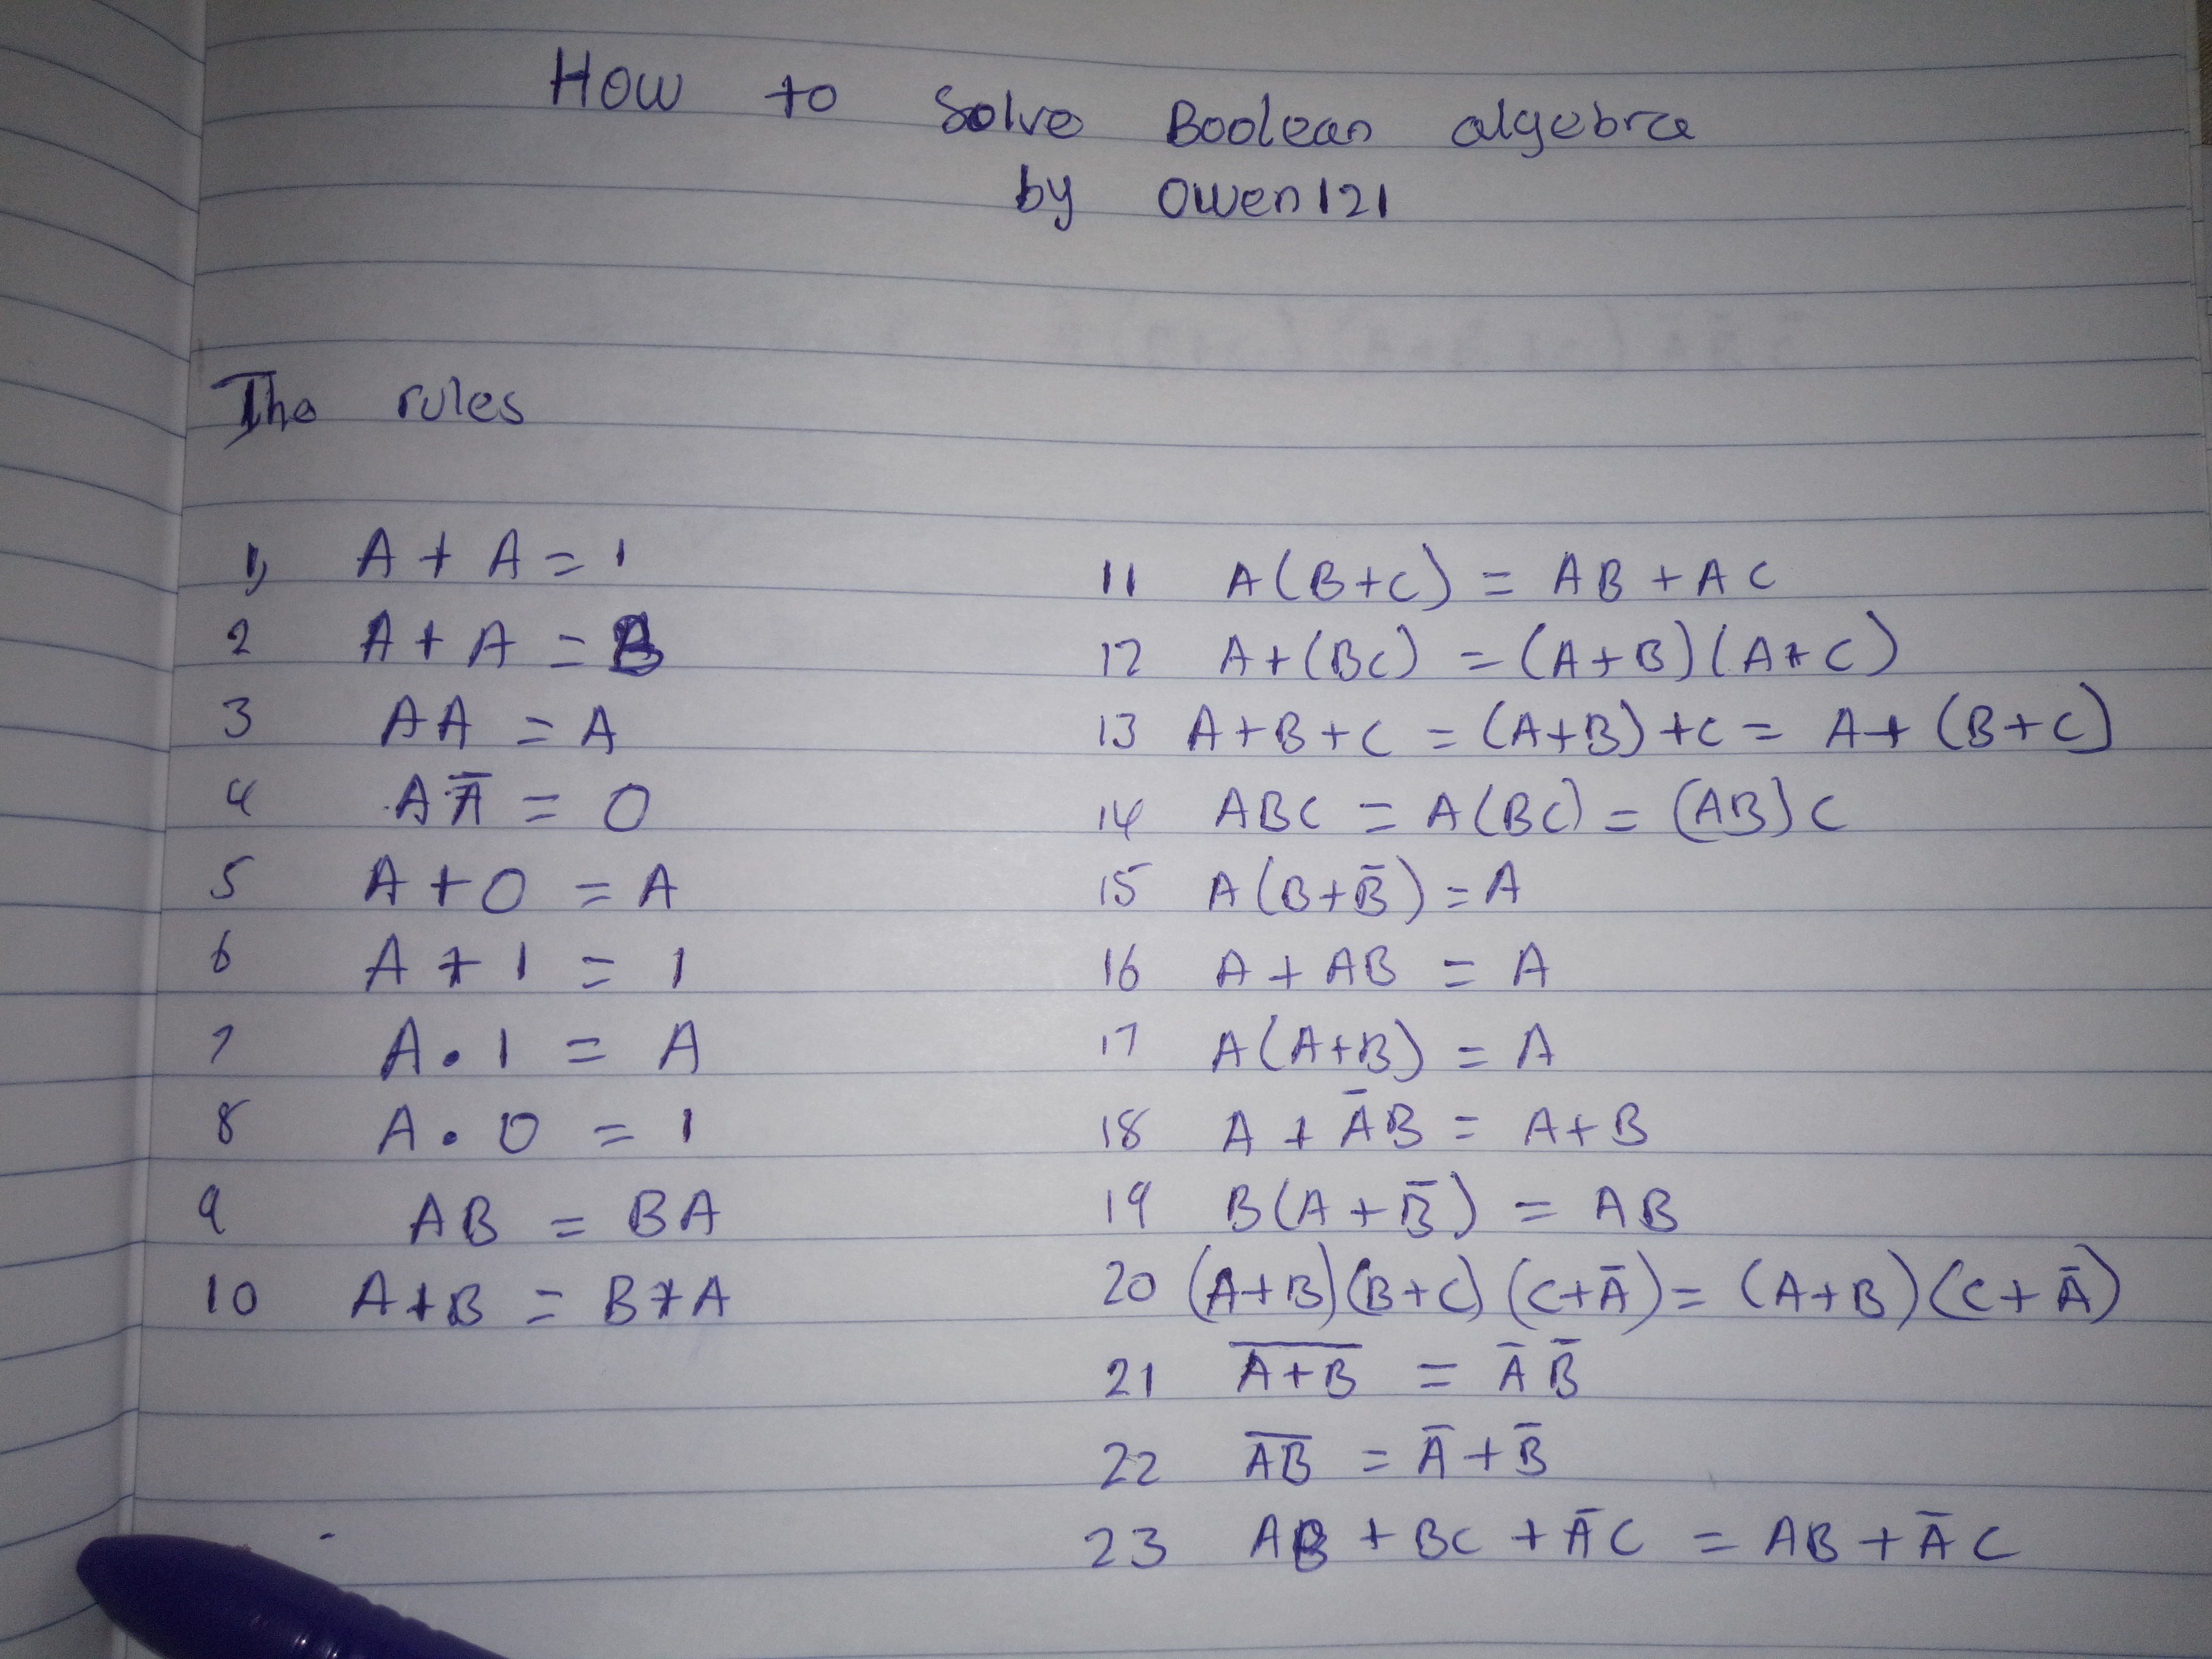 How to Solve Boolean algebra
by Owen121
The rules
1, A + A = 1
2 A + A = B
3 AA = A
4 AĀ = 0
5 A + 0 = A
6 A + 1 = 1
7 A . 1 = A
8 A . 0 = 1
9 AB = BA
10 A+B = B+A
11 A(B+C) = AB + AC
12 A+(BC) = (A+B)(A+C)
13 A+B+C = (A+B)+C = A+(B+C)
14 ABC = A(BC) = (AB)C
15 A(B+B̄) = A
16 A + AB = A
17 A(A+B) = A
18 A + ĀB = A+B
19 B(A+B̄) = AB
20 (A+B)(B+C)(C+Ā) = (A+B)(C+Ā)
21 A̅+̅B̅ = Ā B̄
22 A̅B̅ = Ā + B̄
23 AB + BC + ĀC = AB + ĀC